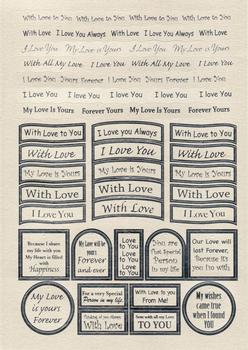 With Love to You With Love to You With Love to You With Love to You
With Love I Love You Always With Love I Love You Always With Love
I Love You My Love is Yours I Love You My Love is Yours
With All My Love I Love You With All My Love I Love You
I Love You Yours Forever I Love You Yours Forever
I Love You I love you I Love You I love you I Love You
My Love Is Yours Forever Yours My Love Is Yours Forever Yours
With Love to You
I Love you Always
With Love to You
With Love
I Love You
With Love
My Love is Yours
My Love is Yours
My Love is Yours
With Love
With Love
With Love
I Love You
With Love
I Love You
Because I share
my life with you
My Heart is filled
with
Happiness
My Love will be
yours
Forever
and ever
Love
to You
Love
to You
Love
to You
You are
that Special
Person
in my life
Our Love will
last Forever,
Because it's
you I'm with
My Love
is yours
Forever
For a very Special
Person in my life.
With Love to you
From Me!
Thinking of you always
With Love
Sent with all my Love
TO YOU
My wishes
came true
when I found
YOU